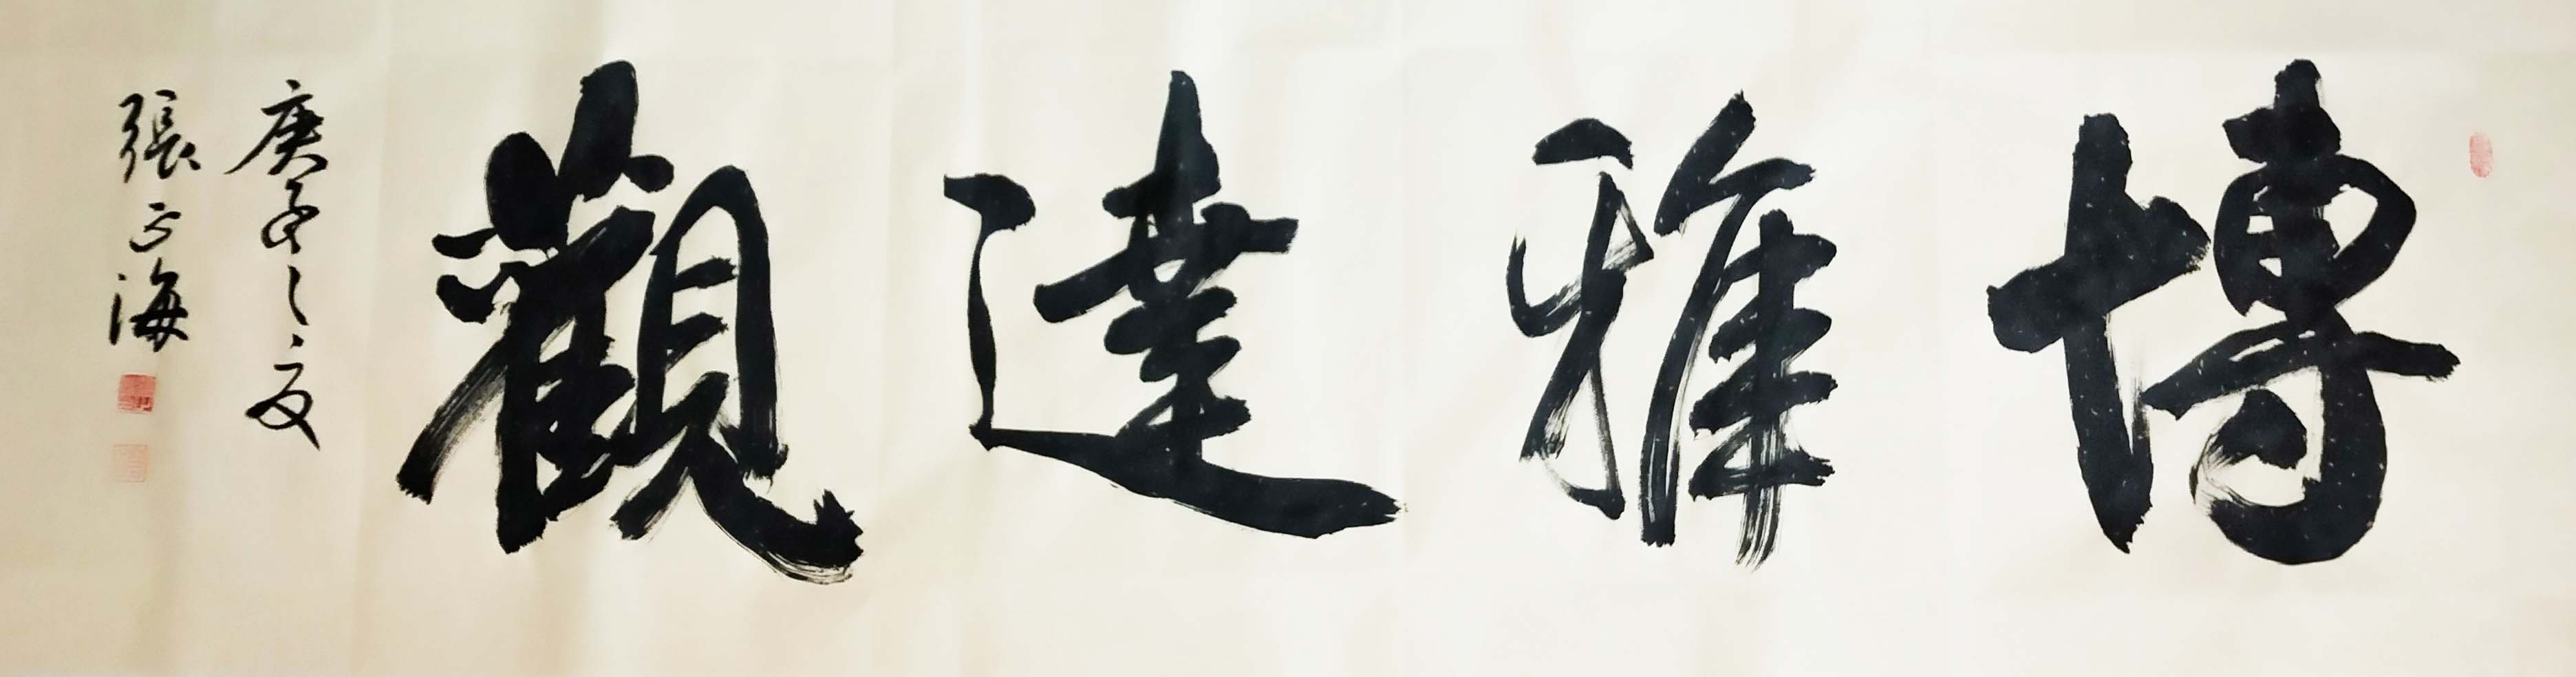 博雅達觀
庚子之夏
張正海